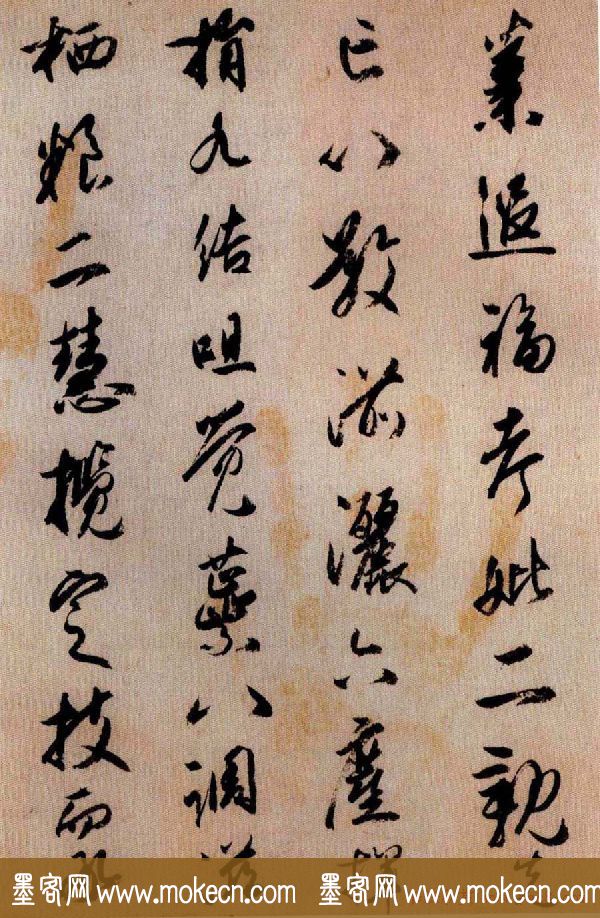 業遐福考妣二親
亡以散灑六塵
捐九結咀覺蘂八調
栖二慧攬定枝而
墨客网 www.mokecn.com 墨客网 www.mokecn.com